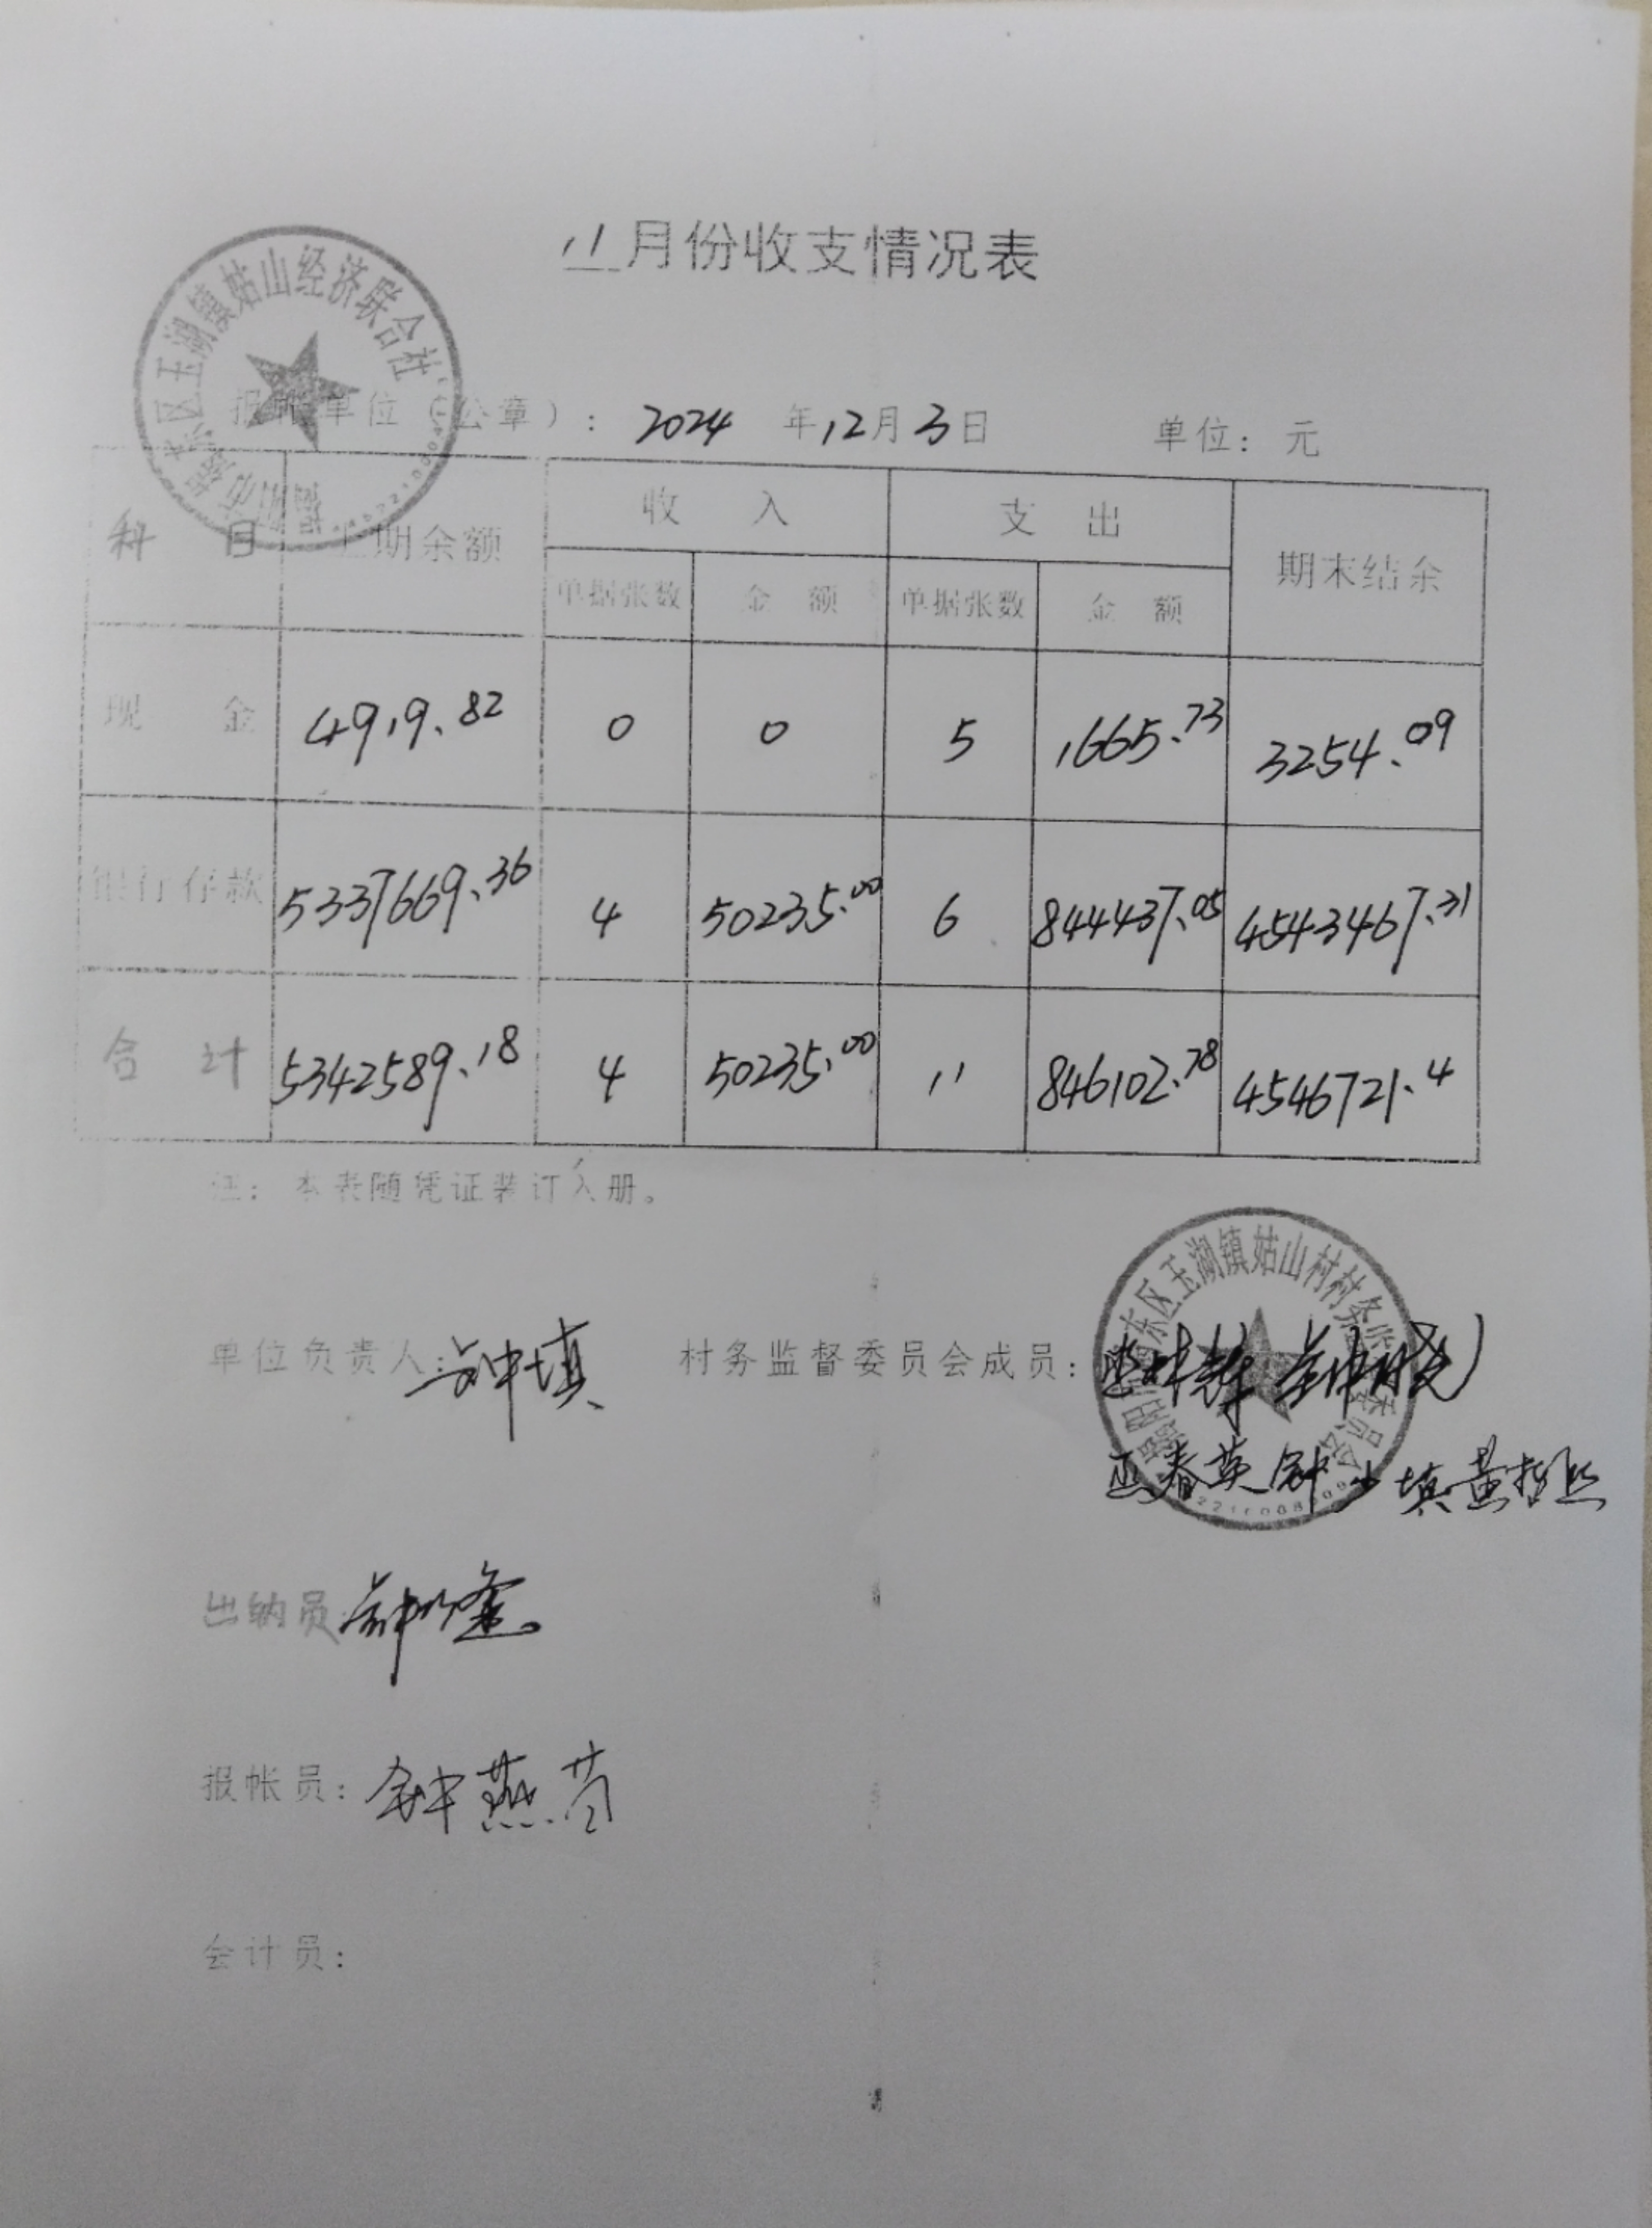 11月份收支情况表
揭阳市揭东区玉湖镇姑山经济联合社
报帐单位（公章）: 2024 年12月3日 单位: 元
科 目 上期余额 收 入 支 出 期末结余
单据张数 金 额 单据张数 金 额
现 金 4919.82 0 0 5 1665.73 3254.09
银行存款 5337669.36 4 50235.00 6 844437.05 4543467.31
合 计 5342589.18 4 50235.00 11 846102.78 4546721.4
注: 本表随凭证装订入册。
揭阳市揭东区玉湖镇姑山村村务监督委员会
单位负责人: 村务监督委员会成员:
出纳员:
报帐员: 钟燕芳
会计员: